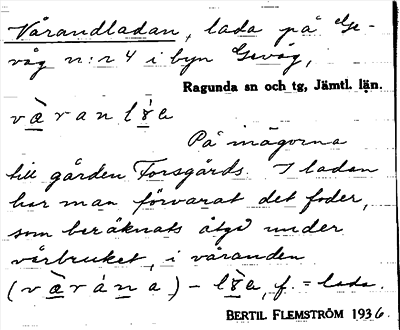 Vårandladan, lada på Ge-
våg n:r 4 i byn Gevåg,
Ragunda sn och tg, Jämtl. län.
På inägorna
till gården Forsgårds. I ladan
har man förvarat det foder,
som beräknats åtgå under
vårbruket, i våranden
f. = lada.
BERTIL FLEMSTRÖM 1936.